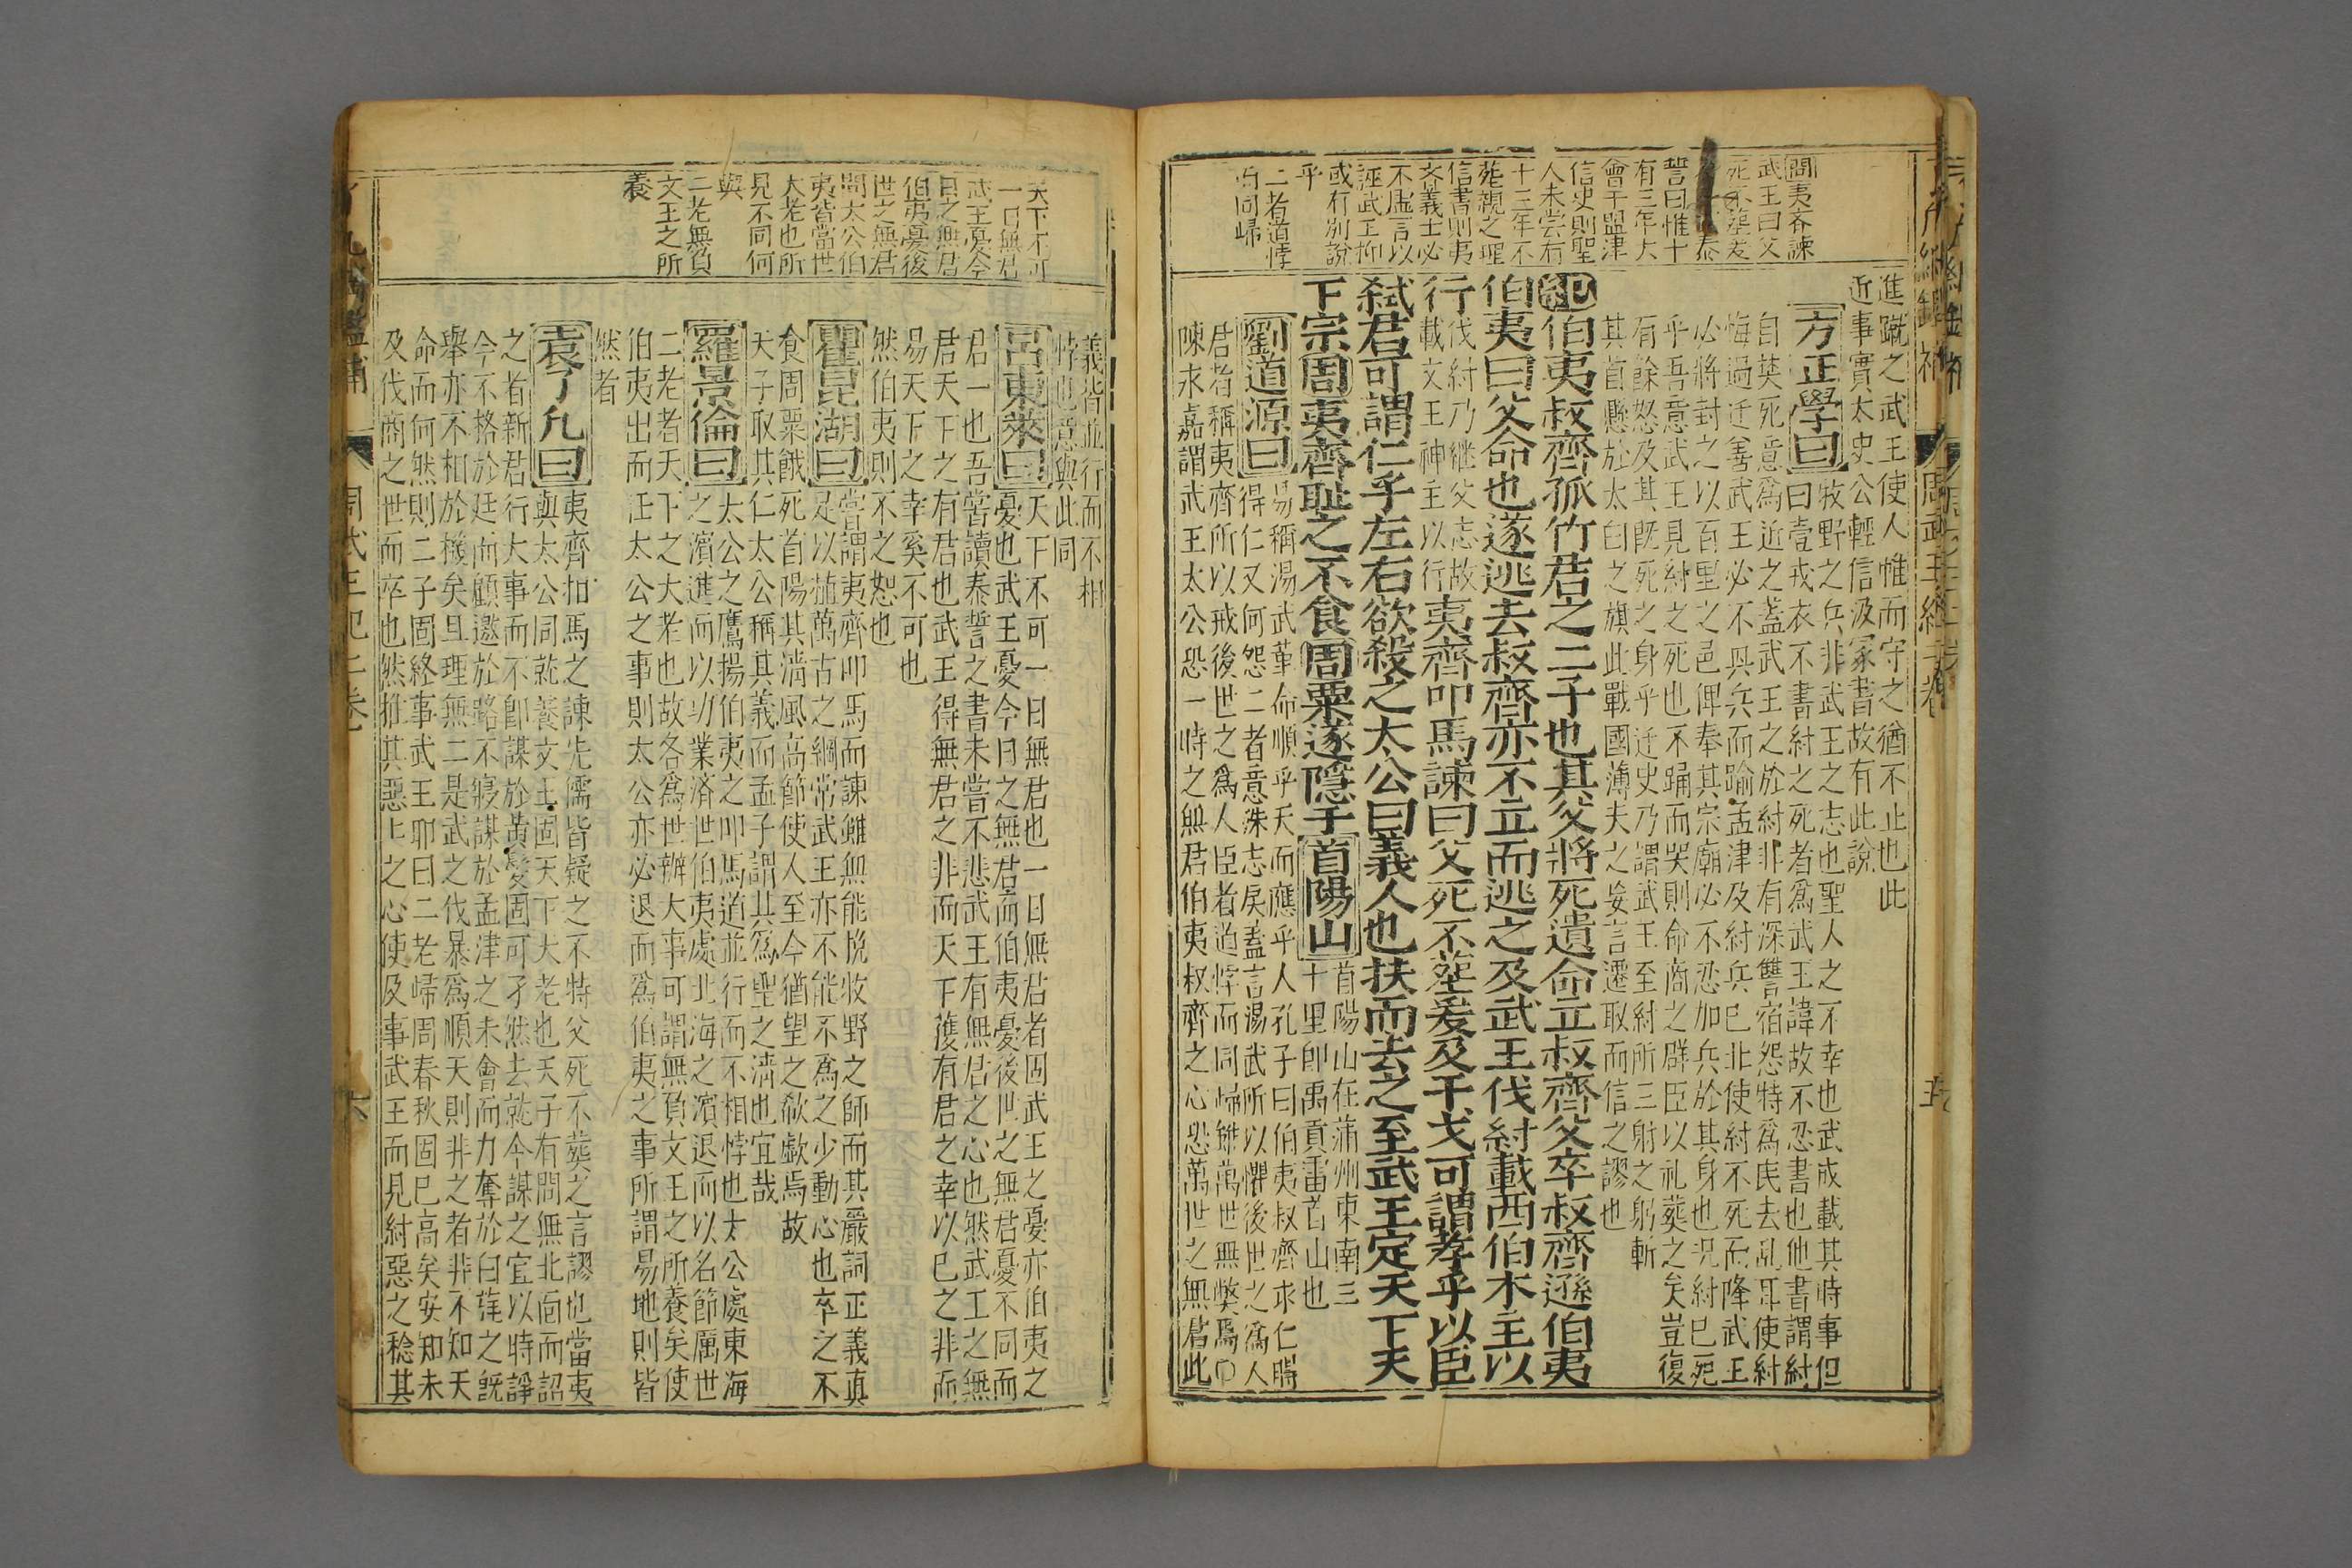 問夷齊諫
武王曰父
死不葬爰
泰
誓曰惟十
有三年大
會于盟津
信史則聖
人未嘗有
十三年不
葬親之理
信書則夷
齊義士必
不虛言以
誣武王抑
或有別說
乎
二者道悖
而同歸
進蹴之武王使人惟而守之猶不止也此
近事實太史公輕信汲冢書故有此說
方正學曰牧野之兵非武王之志也聖人之不幸也武成載其時事但
曰壹戎衣不書紂之死者為武王諱故不忍書也他書謂紂
自焚死意為近之蓋武王之於紂非有深讐宿怨特為民去乱耳使紂
悔過迁善武王必不興兵而踰孟津及紂兵已北使紂不死而降武王
必將封之以百里之邑俾奉其宗廟必不忍加兵於其身也况紂已死
乎吾意武王見紂之死也不踊而哭則命商之群臣以礼葬之矣豈復
有餘怒及其既死之身乎迁史乃謂武王至紂所三射之躬斬
其首懸於太白之旗此戰國薄夫之妄言遷取而信之謬也
紀伯夷叔齊孤竹君之二子也其父將死遺命立叔齊父卒叔齊遜伯夷
伯夷曰父命也遂逃去叔齊亦不立而逃之及武王伐紂載西伯木主以
行伐紂乃継父志故
載文王神主以行夷齊叩馬諫曰父死不葬爰及干戈可謂孝乎以臣
弑君可謂仁乎左右欲殺之太公曰義人也扶而去之至武王定天下天
下宗周夷齊恥之不食周粟遂隱于首陽山首陽山在蒲州東南三
十里即禹貢雷首山也
劉道源曰易稱湯武革命順乎天而應乎人孔子曰伯夷叔齊求仁
得仁又何怨二者意殊志戾蓋言湯武所以懼後世之為人
君者稱夷齊所以戒後世之為人臣者道悖而同歸雖萬世無弊焉
陳永嘉謂武王太公恐一時之無君伯夷叔齊之心恐萬世之無君此
天下不可
一日無君
武王憂今
日之無君
伯夷憂後
世之無君
問太公伯
夷皆當世
大老也所
見不同何
與
二老無負
文王之所
養
義皆並行而不相
悖也意與此同
呂東萊曰天下不可一日無君也一日無君者固武王之憂亦伯夷之
憂也武王憂今日之無君而伯夷憂後世之無君憂不同而
君一也吾嘗讀泰誓之書未嘗不悲武王有無君之心也然武王之無
君天下之有君也武王得無君之非而天下獲有君之幸以己之非而
易天下之幸奚不可也
然伯夷則不之恕也
瞿昆湖曰嘗謂夷齊叩馬而諫雖無能挽牧野之師而其嚴詞正義真
足以植萬古之綱常武王亦不能不為之少動心也卒之不
食周粟餓死首陽其淸風高節使人至今猶望之欷歔焉故
天子取其仁太公稱其義而孟子謂其為聖之淸也宜哉
羅景倫曰太公之鷹揚伯夷之叩馬道並行而不相悖也太公處東海
之濱進而以功業済世伯夷處北海之濱退而以名節厲世
二老者天下之大老也故各為世辦大事可謂無負文王之所養矣使
伯夷出而任太公之事則太公亦必退而為伯夷之事所謂易地則皆
然者
袁了凡曰夷齊扣馬之諫先儒皆疑之不特父死不葬之言謬也當夷
與太公同就養文王固天下大老也天子有問無北面而詔
之者新君行大事而不即謀於黃髮固可孑然去就今謀之宜以時諍
今不格於廷而顧邀於路不寢謀於孟津之未會而力奪於白旄之既
舉亦不相於機矣且理無二是武之伐暴為順天則非之者非不知天
命而何然則二子固終事武王耶曰二老歸周春秋固已高矣安知未
及伐商之世而卒也然推其惡惡之心使及事武王而見紂惡之稔其
周武王紀 二卷
六